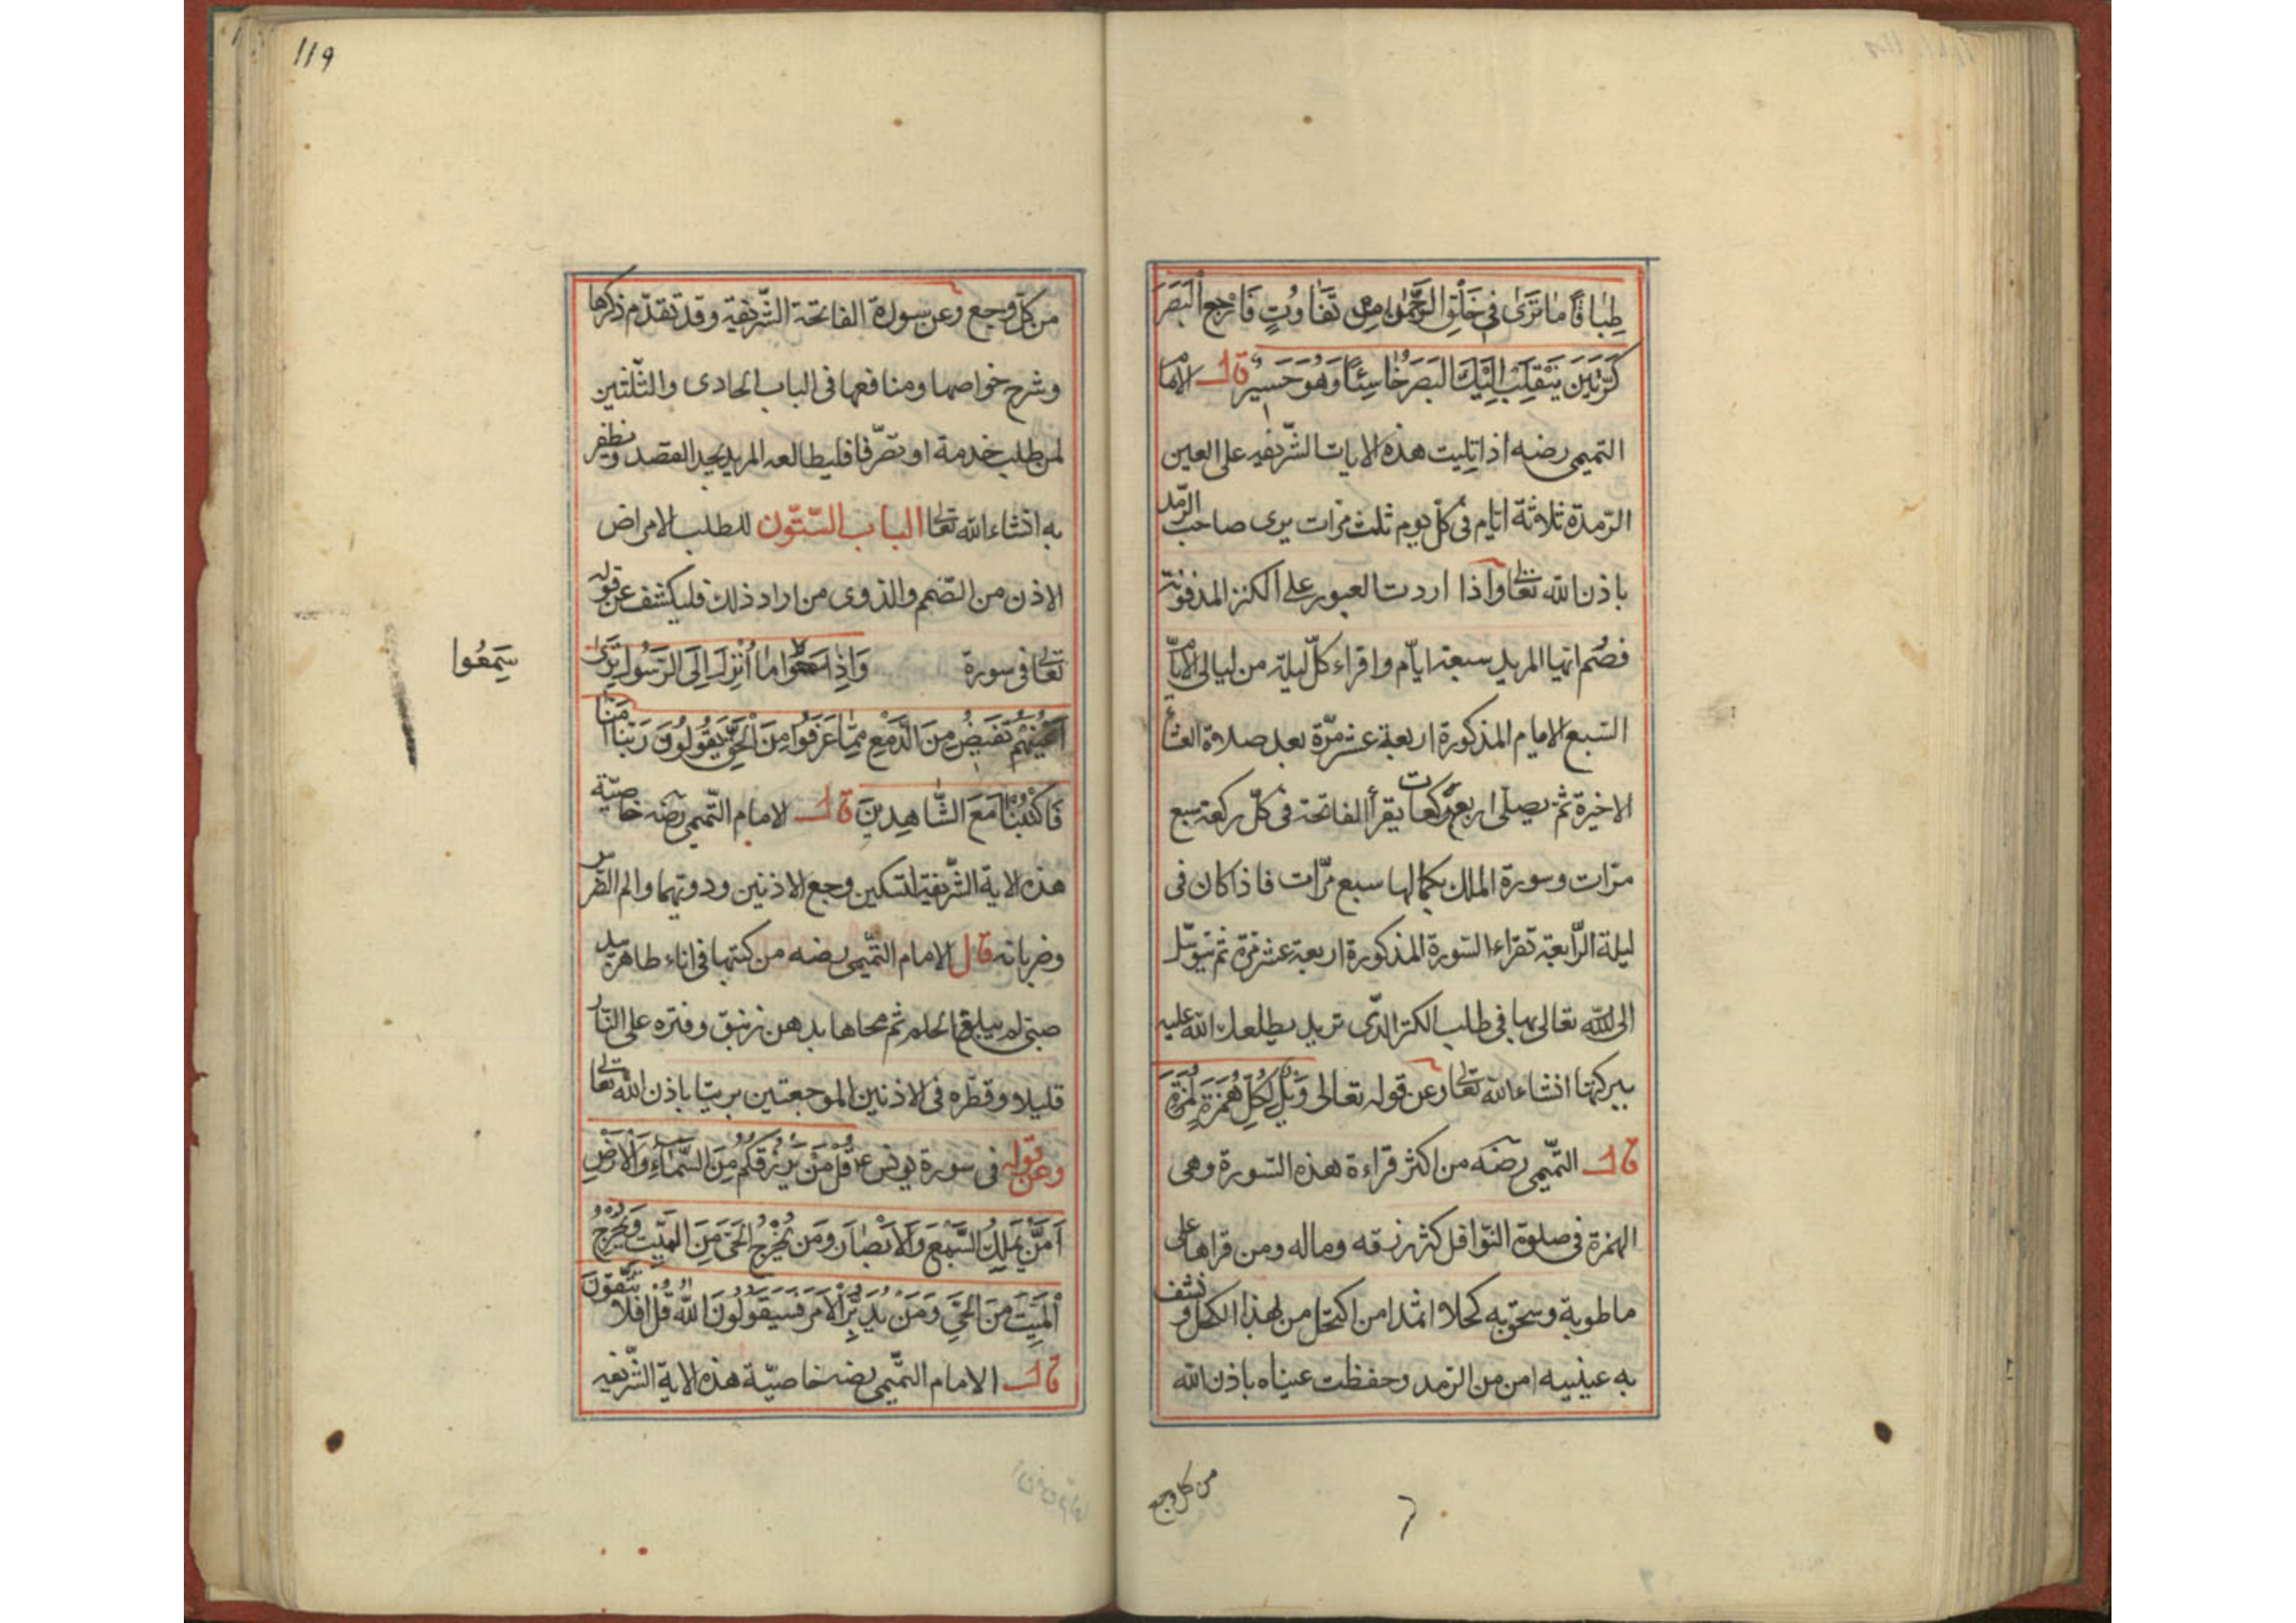 طِبَاقًا مَا تَرَى فِي خَلْقِ الرَّحْمٰنِ مِنْ تَفَاوُتٍ فَارْجِعِ الْبَصَرَ
كَرَّتَيْنِ يَنْقَلِبْ إِلَيْكَ الْبَصَرُ خَاسِئًا وَهُوَ حَسِيرٌ قال الامام
التميمى رضه اذا تليت هذه الايات الشّريفه على العين
الرّمدة ثلاثة ايّام فى كلّ يوم ثلث مرّات يرى صاحب الرّمد
باذن الله تعالى واذا اردت العبور على الكنز المدفونة
فصُم ايّها المريد سبعة ايّام واقراء كلّ ليلة من ليالى الايّام
السّبع الامام المذكورة اربعة عشر مرّة بعد صلاة العشاء
الاخيرة ثمّ يصلّى اربع ركعات يقرأ الفاتحة فى كلّ ركعة سبع
مرّات وسورة الملك بكمالها سبع مرّات فاذا كان فى
ليلة الرّابعة تقراء السّورة المذكورة اربعة عشر مرّة ثم تتوسّل
الى الله تعالى بها فى طلب الكنز الذّى تريد يطلعك الله عليه
ببركتها انشاء الله تعالى وعن قوله تعالى وَيْلٌ لِكُلِّ هُمَزَةٍ لُمَزَةٍ
قال التّميمى رضه من اكثر قراءة هذه السّورة وهى
الهمزة فى صلوة النّوافل كثر رزقه وماله ومن قراها على
ماطوبة وسحق به كحلا اثمدا من اكتحل من لهذا الكحل و نشف
به عينيه امن من الرّمد وحفظت عيناه باذن الله
من كل وجع
119
من كلّ وجع وعن سورة الفاتحة الشّريفة وقد تقدّم ذكرها
وشرح خواصها ومنافعها فى الباب الحادى والثّلثين
لمن طلب خدمة او تصرّفا فليطالعه المريد يجد القصد ونظفر
به انشاء الله تعالى الباب السّتّون للطلب الامراض
الاذن من الصّمم والذوى من اراد ذلك فليكشف عن قوله
تعالى فى سورة وَإِذَا سَمِعُوا مَا أُنْزِلَ إِلَى الرَّسُولِ تَرَى
سَمِعُوا
أَعْيُنَهُمْ تَفِيضُ مِنَ الدَّمْعِ مِمَّا عَرَفُوا مِنَ الْحَقِّ يَقُولُونَ رَبَّنَا آمَنَّا
فَاكْتُبْنَا مَعَ الشَّاهِدِينَ قال الامام التّميمى رضه خاصيّة
هذه الاية الشّريفة لتسكين وجع الاذنين ودوتيهما والم الضّرس
وضربانه قال الامام التّميمى رضه من كتبها فى اناء طاهر بيد
صبىّ لم يبلغ الحلم ثم محاها بدهن زنبق وفتره على النّار
قليلا وقطّره فى الاذنين الموجعتين بريتا باذن الله تعالى
وعن قوله فى سورة يونس ع قُلْ مَنْ يَرْزُقُكُمْ مِنَ السَّمَاءِ وَالْأَرْضِ
أَمَّنْ يَمْلِكُ السَّمْعَ وَالْأَبْصَارَ وَمَنْ يُخْرِجُ الْحَيَّ مِنَ الْمَيِّتِ وَيُخْرِجُ
الْمَيِّتَ مِنَ الْحَيِّ وَمَنْ يُدَبِّرُ الْأَمْرَ فَسَيَقُولُونَ اللّٰهُ قُلْ أَفَلَا تَتَّقُونَ
قال الامام التّميمى رضه خاصيّة هذه الاية الشّريفه